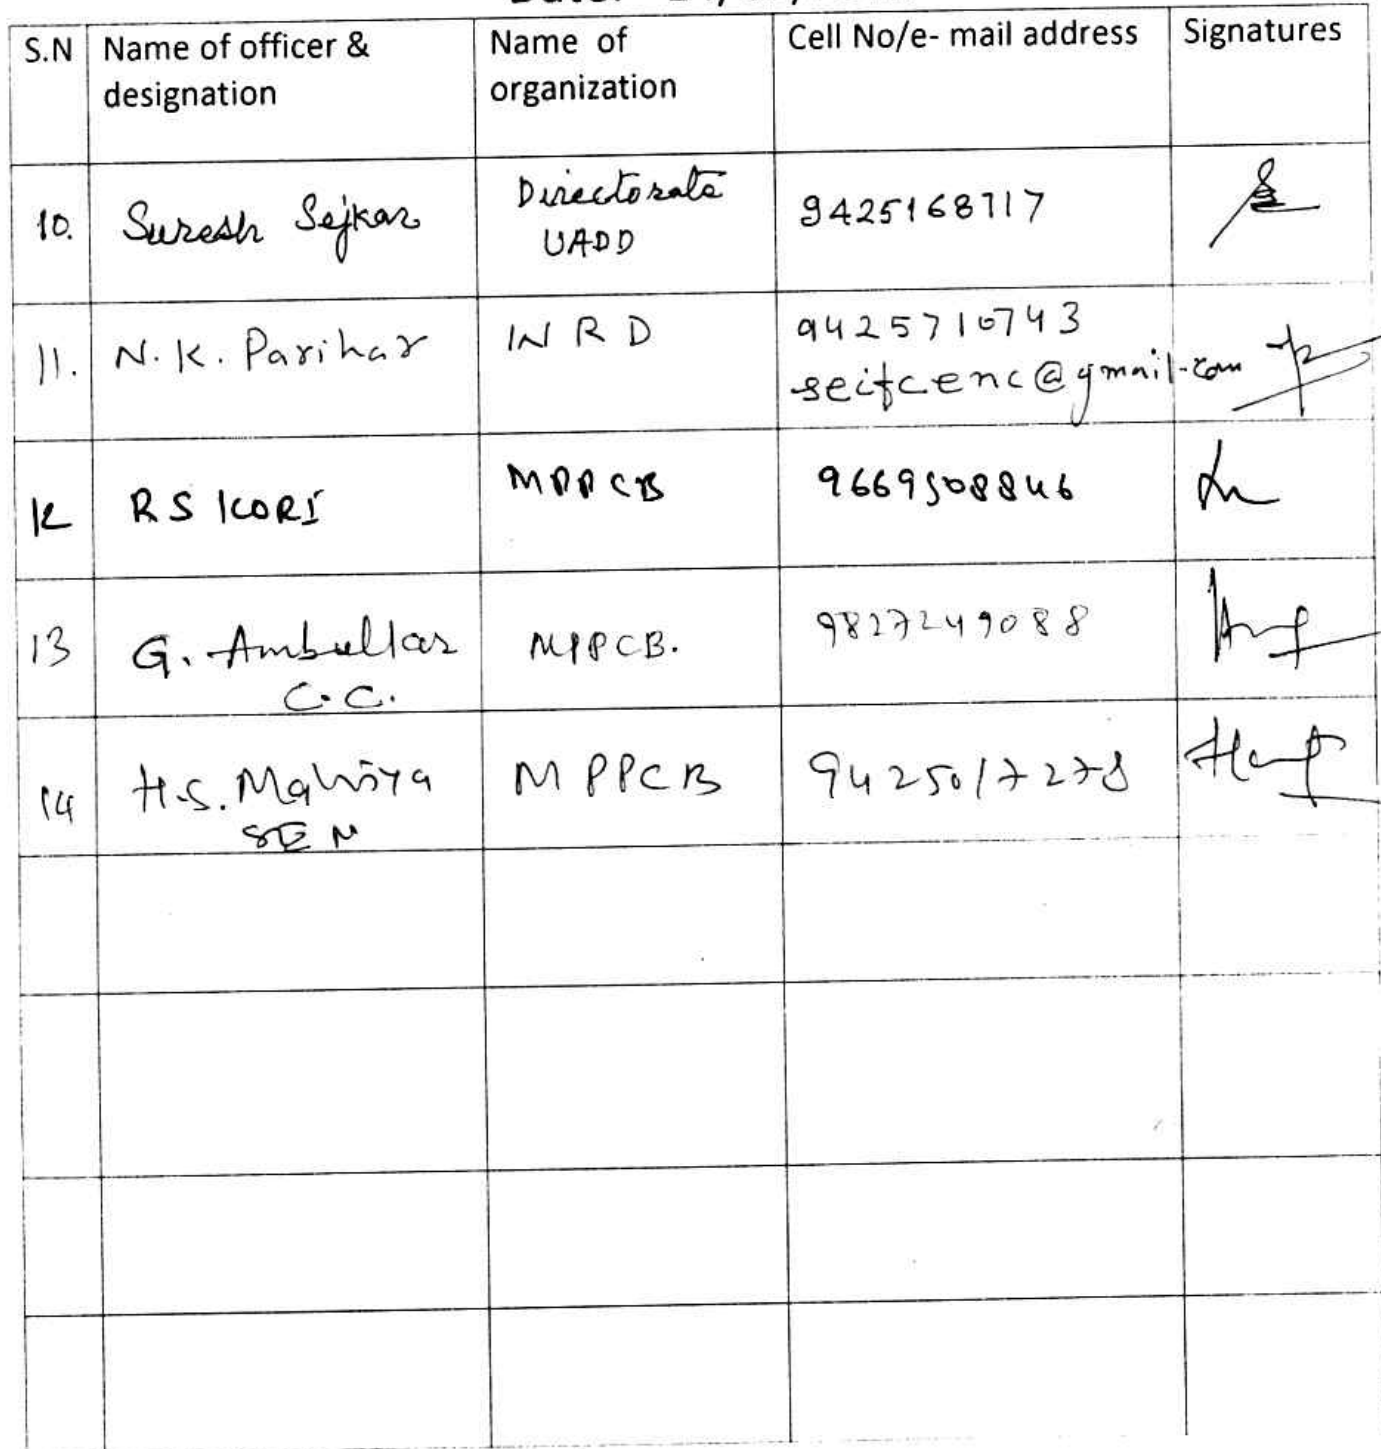 S.N Name of officer & designation Name of organization Cell No/e- mail address Signatures
10. Suresh Sejkar Directorate UADD 9425168717
11. N.K. Parihar WRD 9425710743
seifcenc@gmail.com
12 RS KORI MPPCB 9669508846
13 G. Ambulkar MPPCB. 9827249088
C.C.
14 H.S. Malviya MPPCB 9425017278
SEN